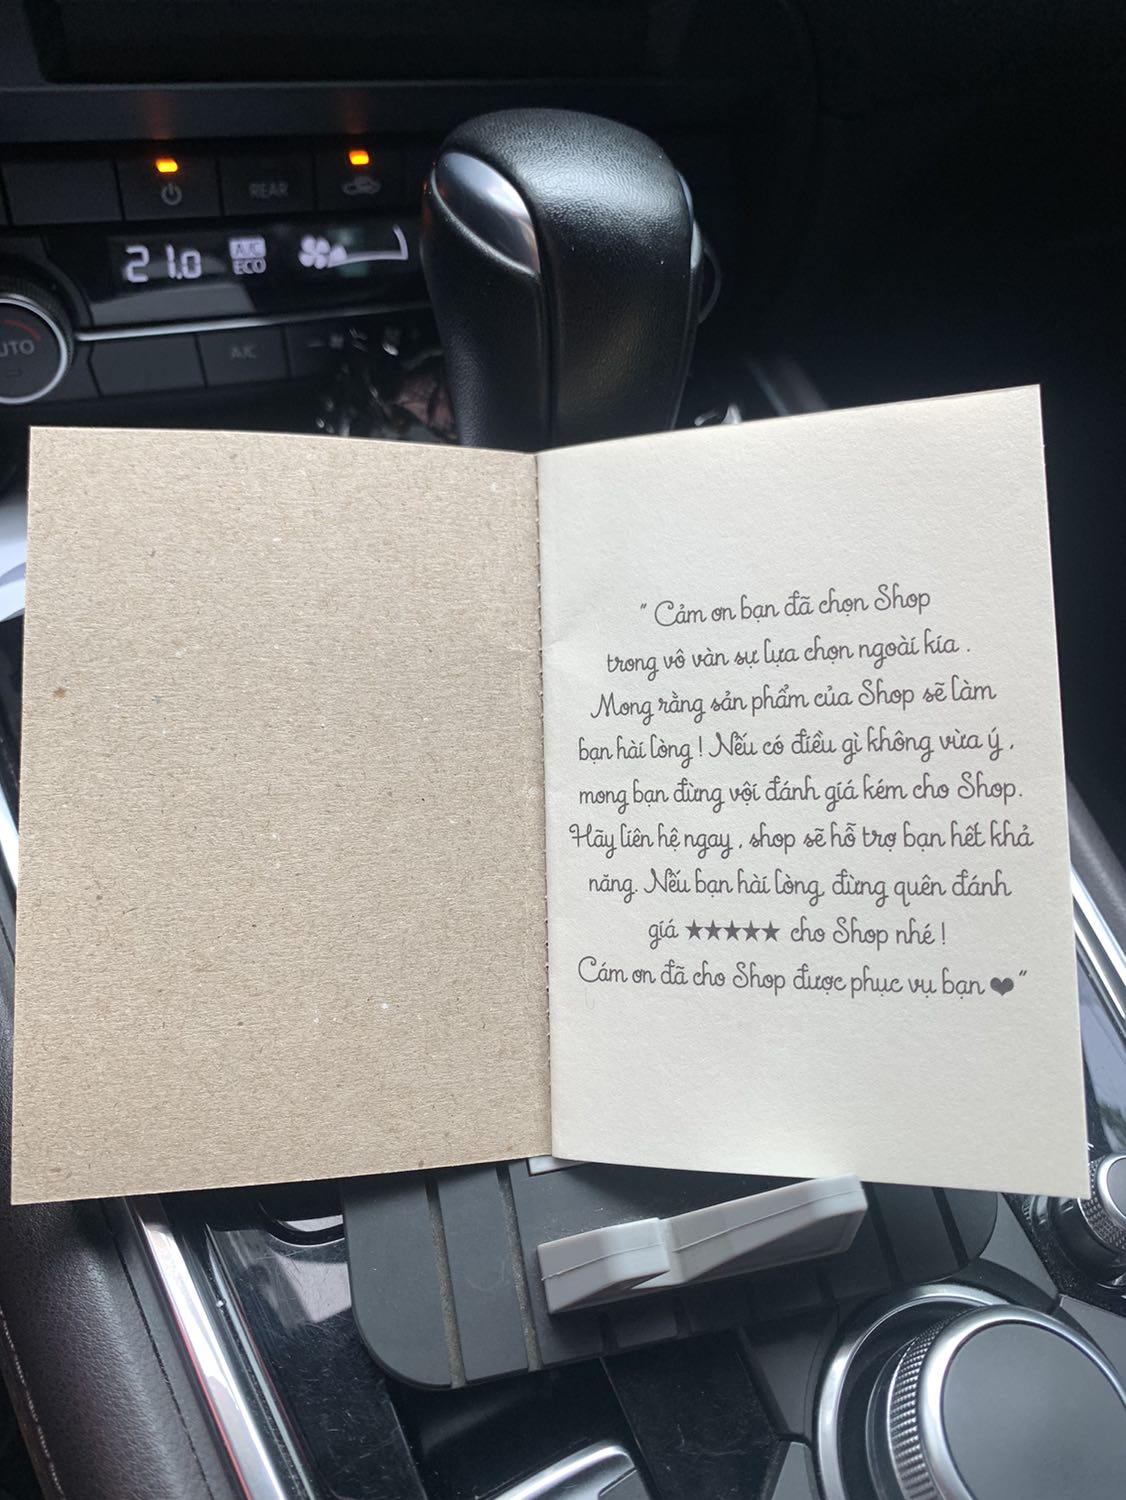 REAR
21.0
A/C
ECO
AUTO
A/C
" Cảm ơn bạn đã chọn Shop
trong vô vàn sự lựa chọn ngoài kia .
Mong rằng sản phẩm của Shop sẽ làm
bạn hài lòng ! Nếu có điều gì không vừa ý ,
mong bạn đừng vội đánh giá kém cho Shop.
Hãy liên hệ ngay , shop sẽ hỗ trợ bạn hết khả
năng. Nếu bạn hài lòng, đừng quên đánh
giá ★★★★★ cho Shop nhé !
Cám ơn đã cho Shop được phục vụ bạn ❤"